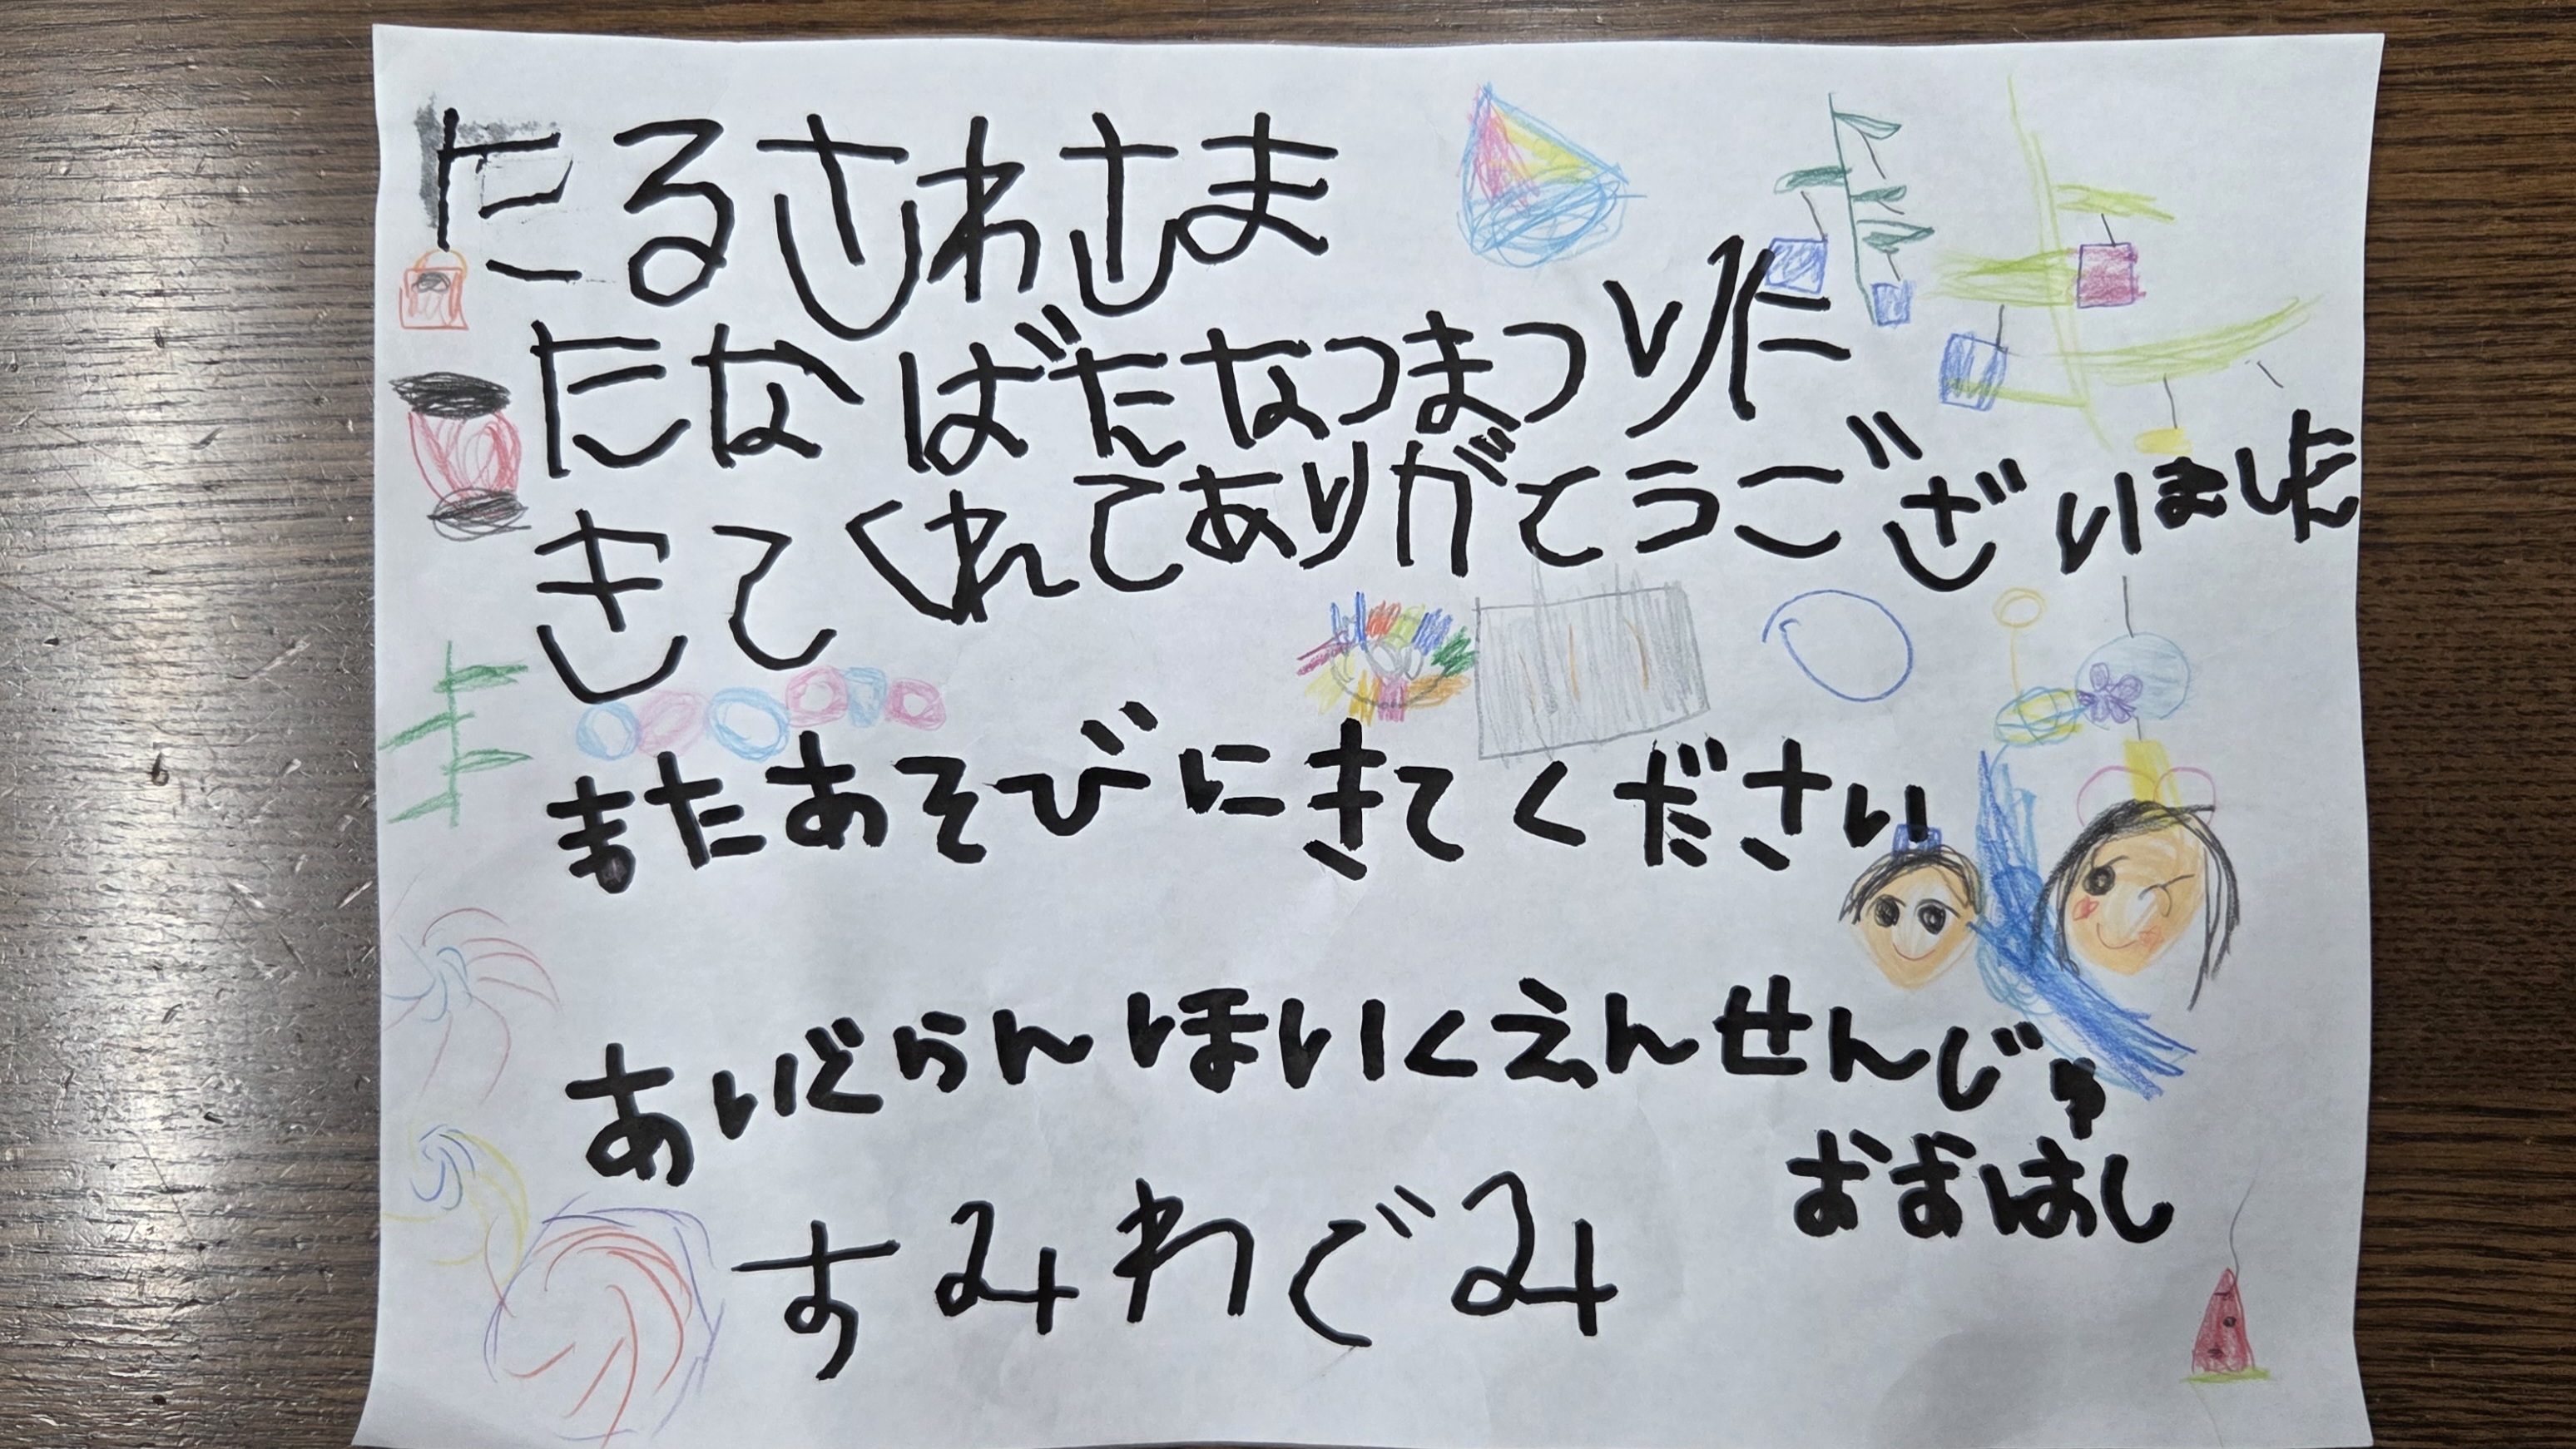 たるさわさま
たなばたなつまつりに
きてくれてありがとうございました
またあそびにきてください
あいぐらんほいくえんせんじゅ
おおはし
すみれぐみ